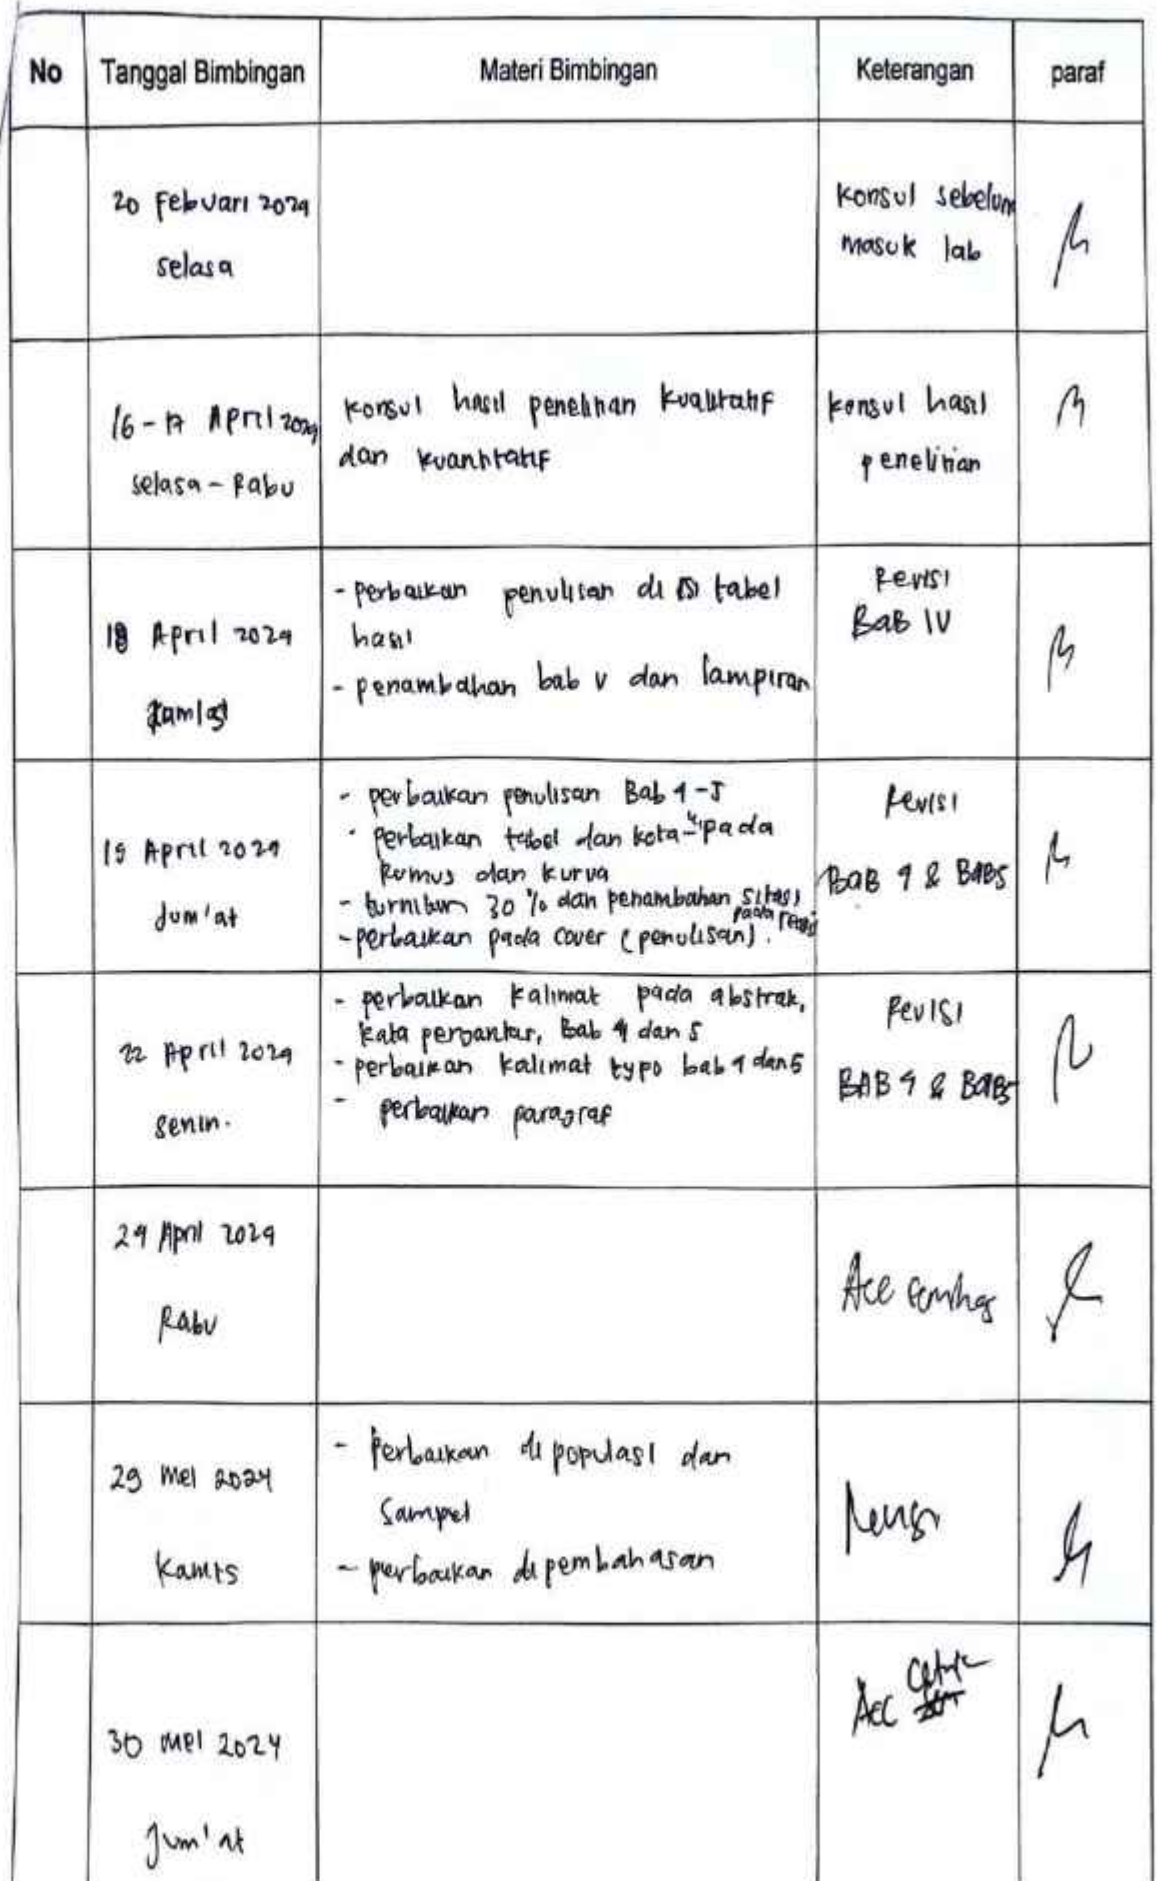 No Tanggal Bimbingan Materi Bimbingan Keterangan paraf
20 Febuari 2024
selasa
konsul sebelum
masuk lab
16 - 17 April 2024
selasa - Rabu
konsul hasil penelitian kualitatif
dan kuantitatif
konsul hasil
penelitian
18 April 2024
kamis
- perbaikan penulisan di tabel
hasil
- penambahan bab V dan lampiran
Revisi
BaB IV
19 April 2024
Jum'at
- perbaikan penulisan Bab 4-5
- perbaikan tabel dan kota-" pada
Rumus dan kurva
- turnitin 30 % dan penambahan sitasi
pada
- perbaikan pada cover (penulisan).
Revisi
BAB 4 & BAB5
22 April 2024
senin.
- perbaikan kalimat pada abstrak,
kata pengantar, Bab 4 dan 5
- perbaikan kalimat typo bab 4 dan 5
- perbaikan paragraf
Revisi
BAB 4 & BAB5
24 April 2024
Rabu
Acc semhas
29 Mei 2024
Kamis
- Perbaikan di populasi dan
Sampel
- perbaikan di pembahasan
Revisi
30 Mei 2024
Jum'at
Acc